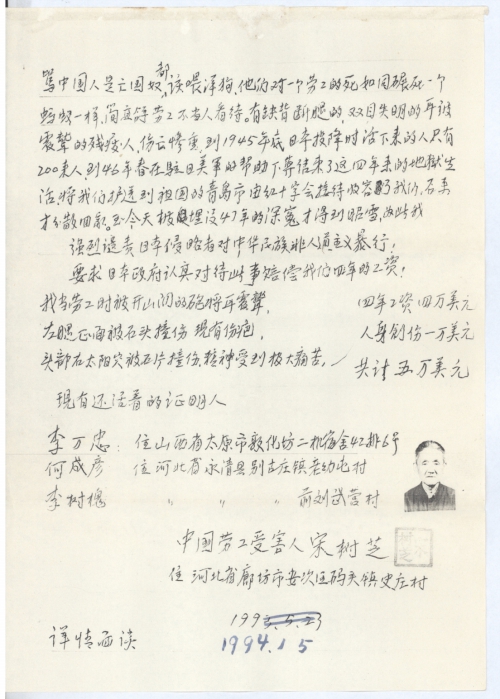 骂中国人是亡国奴,都该喂洋狗,他们对一个劳工的死如同碾死一个
蚂蚁一样,简直将劳工不当人看待。有缺臂断腿的,双目失明的耳被
震聋的残疾人,伤亡惨重,到1945年底日本投降时活下来的人只有
200来人,到46年春在驻日美军的帮助下算结束了这四年来的地狱生
活,将我们护送到祖国的青岛市由红十字会接待收容了我们,后来
才分散回家。至今天被埋没47年的深冤才得到昭雪,为此我
强烈谴责日本侵略者对中华民族非人道主义暴行!
要求日本政府认真对待此事赔偿我们四年的工资!
我当劳工时被开山洞的砲将耳震聋,
四年工资四万美元
左腿正面被石头撞伤现有伤疤,
人身创伤一万美元
头部右太阳穴被石片撞伤,精神受到极大痛苦,
共计五万美元
现有还活着的证明人
李万忠:住山西省太原市敦化坊二机宿舍42排6号
何成彦 住河北省永清县别古庄镇 村
李树槐 〃 〃 〃 前刘武营村
中国劳工受害人宋树芝
住河北省廊坊市安次区码头镇史庄村
1993.5.23
1994.1.5
详情面谈